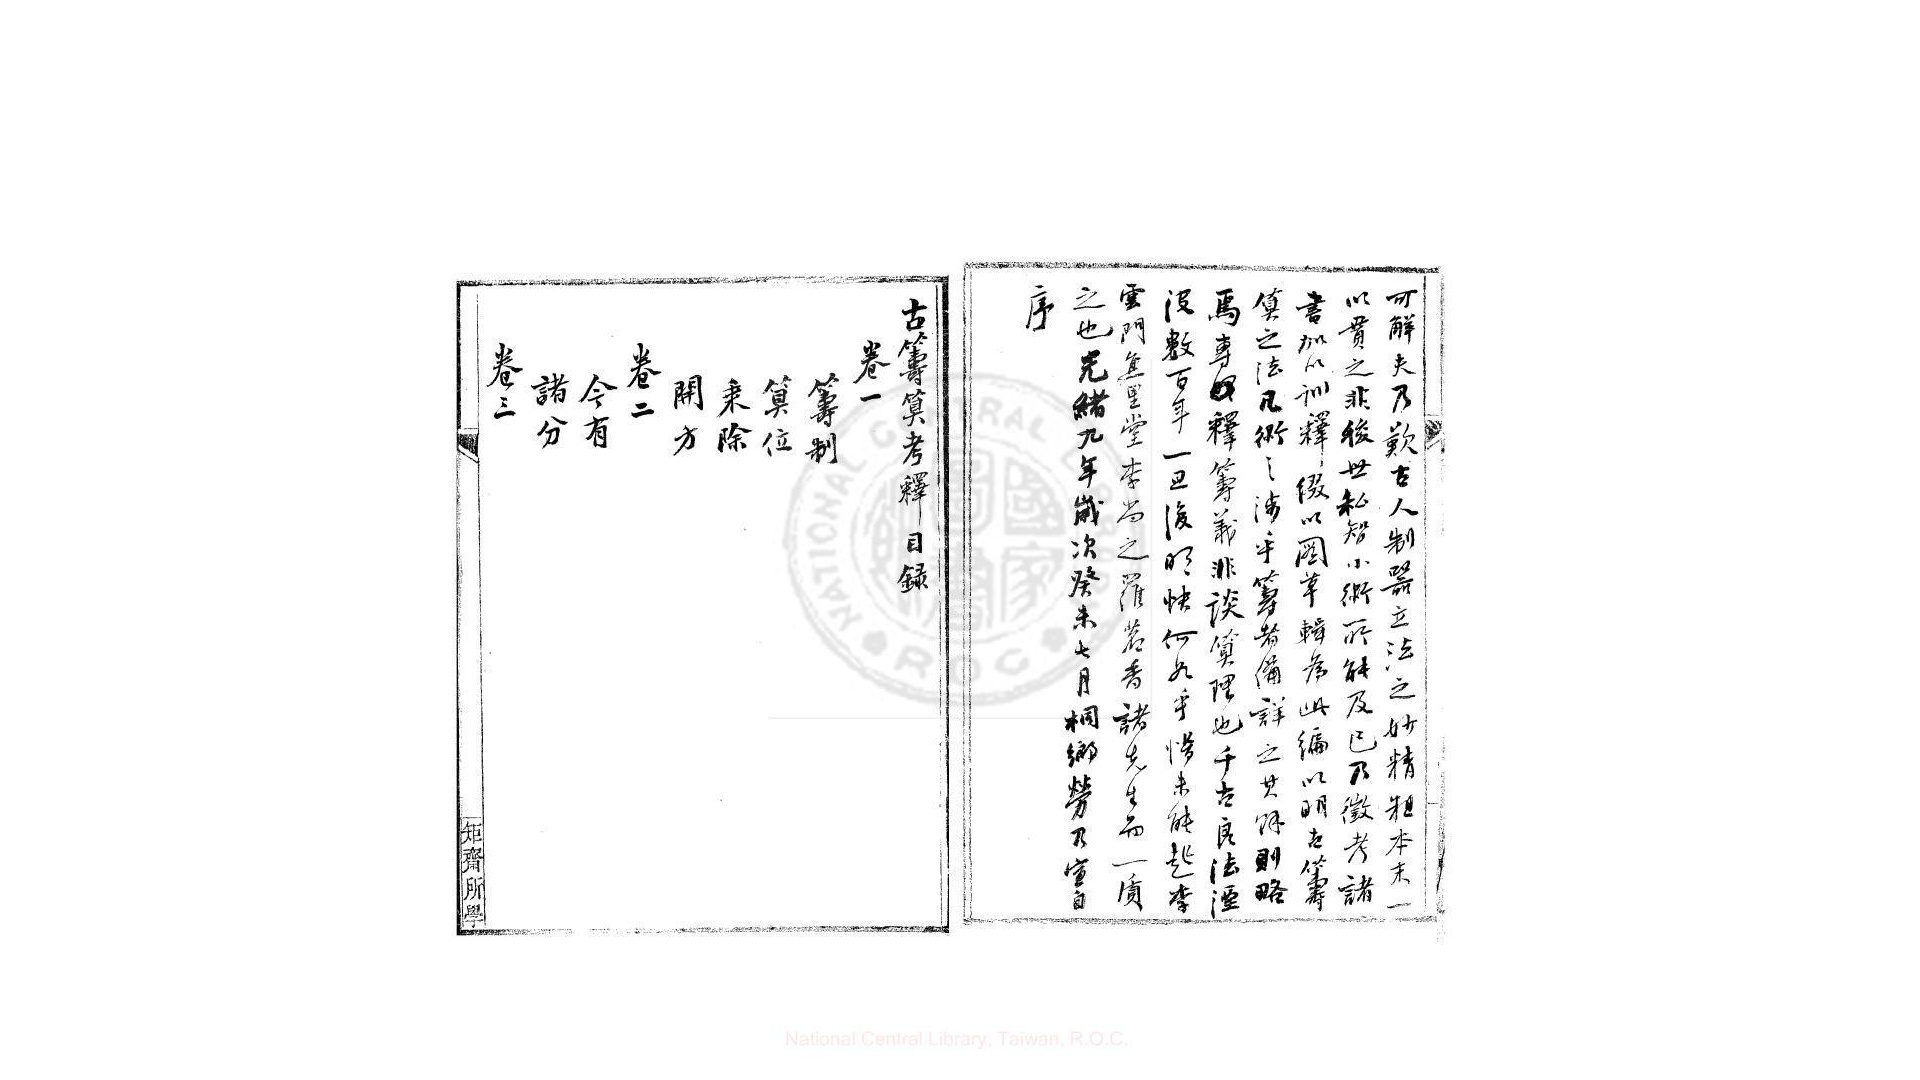 可解夫乃歎古人制器立法之妙精粗本末一
以貫之非後世私智小術所能及已乃徵考諸
書加以訓釋綴以圖草輯為此編以明古籌
算之法凡術之涉乎籌者備詳之其餘則略
焉專釋籌義非談算理也千古良法湮
沒數百年一旦復明快何如乎惜未能起李
雲門焦里堂李尚之羅茗香諸先生而一質
之也光緒九年歲次癸未七月桐鄉勞乃宣自
序
古籌算考釋目錄
卷一
籌制
算位
乘除
開方
卷二
今有
諸分
卷三
矩齋所學
NATIONAL CENTRAL
ROC
National Central Library, Taiwan, R.O.C.